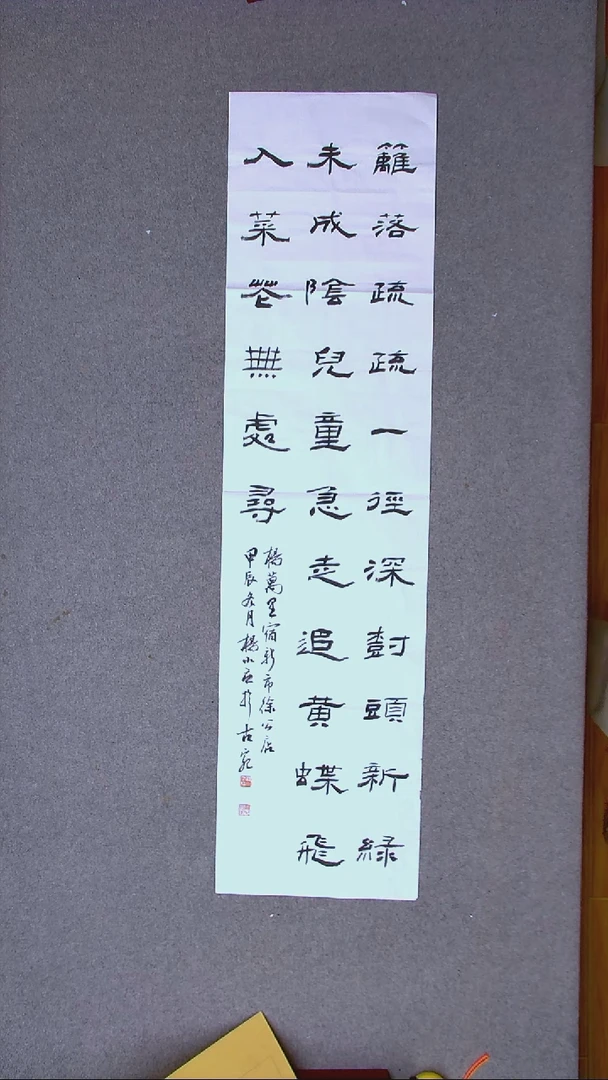 籬落疏疏一徑深樹頭新緑
未成陰兒童急走追黄蝶飛
入菜花無處尋
楊萬里宿新市徐公店
甲辰冬月楊小 於古宛